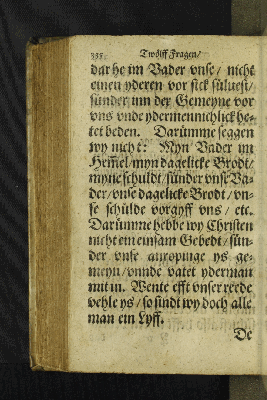 Twölff Fragen/
dat he im Vader vnse / nicht
einen yderen vor sick süluest/
sünder inn der Gemeyne vor
vns vnde ydermennichlick he-
tet beden. Darümme seggen
wy nicht: Myn Vader im
Hem̃el/myn dagelicke Brodt/
myne schuldt/sünder vnse Va-
der/vnse dagelicke Brodt/vn-
se schülde vorgyff vns/ etc.
Darümme hebbe wy Christen
nicht ein einsam Gebedt/sün-
der vnse anropinge ys ge-
meyn/vnnde vatet yderman
mit in. Wente efft vnser reede
vehle ys/so sindt wy doch alle
man ein Lyff.
De